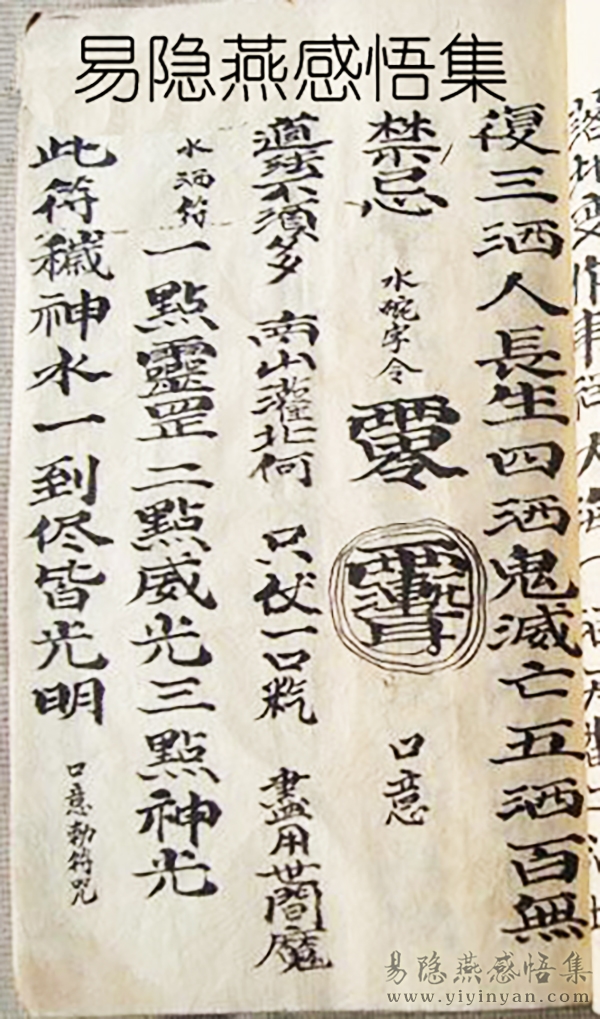 易隐燕感悟集
復三洒人長生四洒鬼滅亡五洒百無
禁忌 水碗字令 口意
道法不須多 南山灌北何 只伏一口炁 盡用世間魔
水洒符 一點靈罡二點威光三點神光
此符穢神水一到侭皆光明 口意勅符咒
易隐燕感悟集
www.yiyinyan.com